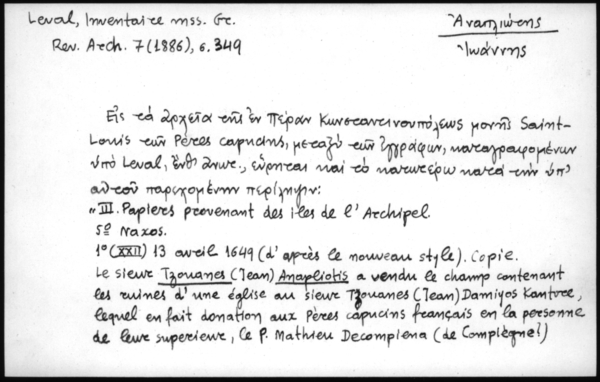 Leval, Inventaire mss. Gr.
Rev. Arch. 7 (1886), σ. 349
Ἀναπλιώτης
Ἰωάννης
Εἰς τὰ ἀρχεῖα τῆς ἐν Πέραν Κωνσταντινουπόλεως μονῆς Saint-
Louis τῶν Pères capucins, μεταξὺ τῶν ἐγγράφων, καταγραφομένων
ὑπὸ Leval, ἔνθ' ἀνωτ., εὕρηται καὶ τὸ κατωτέρω κατὰ τὴν ὑπ'
αὐτοῦ παρεχομένην περίληψιν:
"III. Papiers provenant des îles de l'Archipel.
5º Naxos.
1º (XXII) 13 avril 1649 (d'après le nouveau style). Copie.
Le sieur Tzouanes (Jean) Anapliotis a vendu le champ contenant
les ruines d'une église au sieur Tzouanes (Jean) Damiyos
lequel en fait donation aux Pères capucins français en la personne
de leur superieur, le P. Mathieu Decomplena (de Compiègne?)